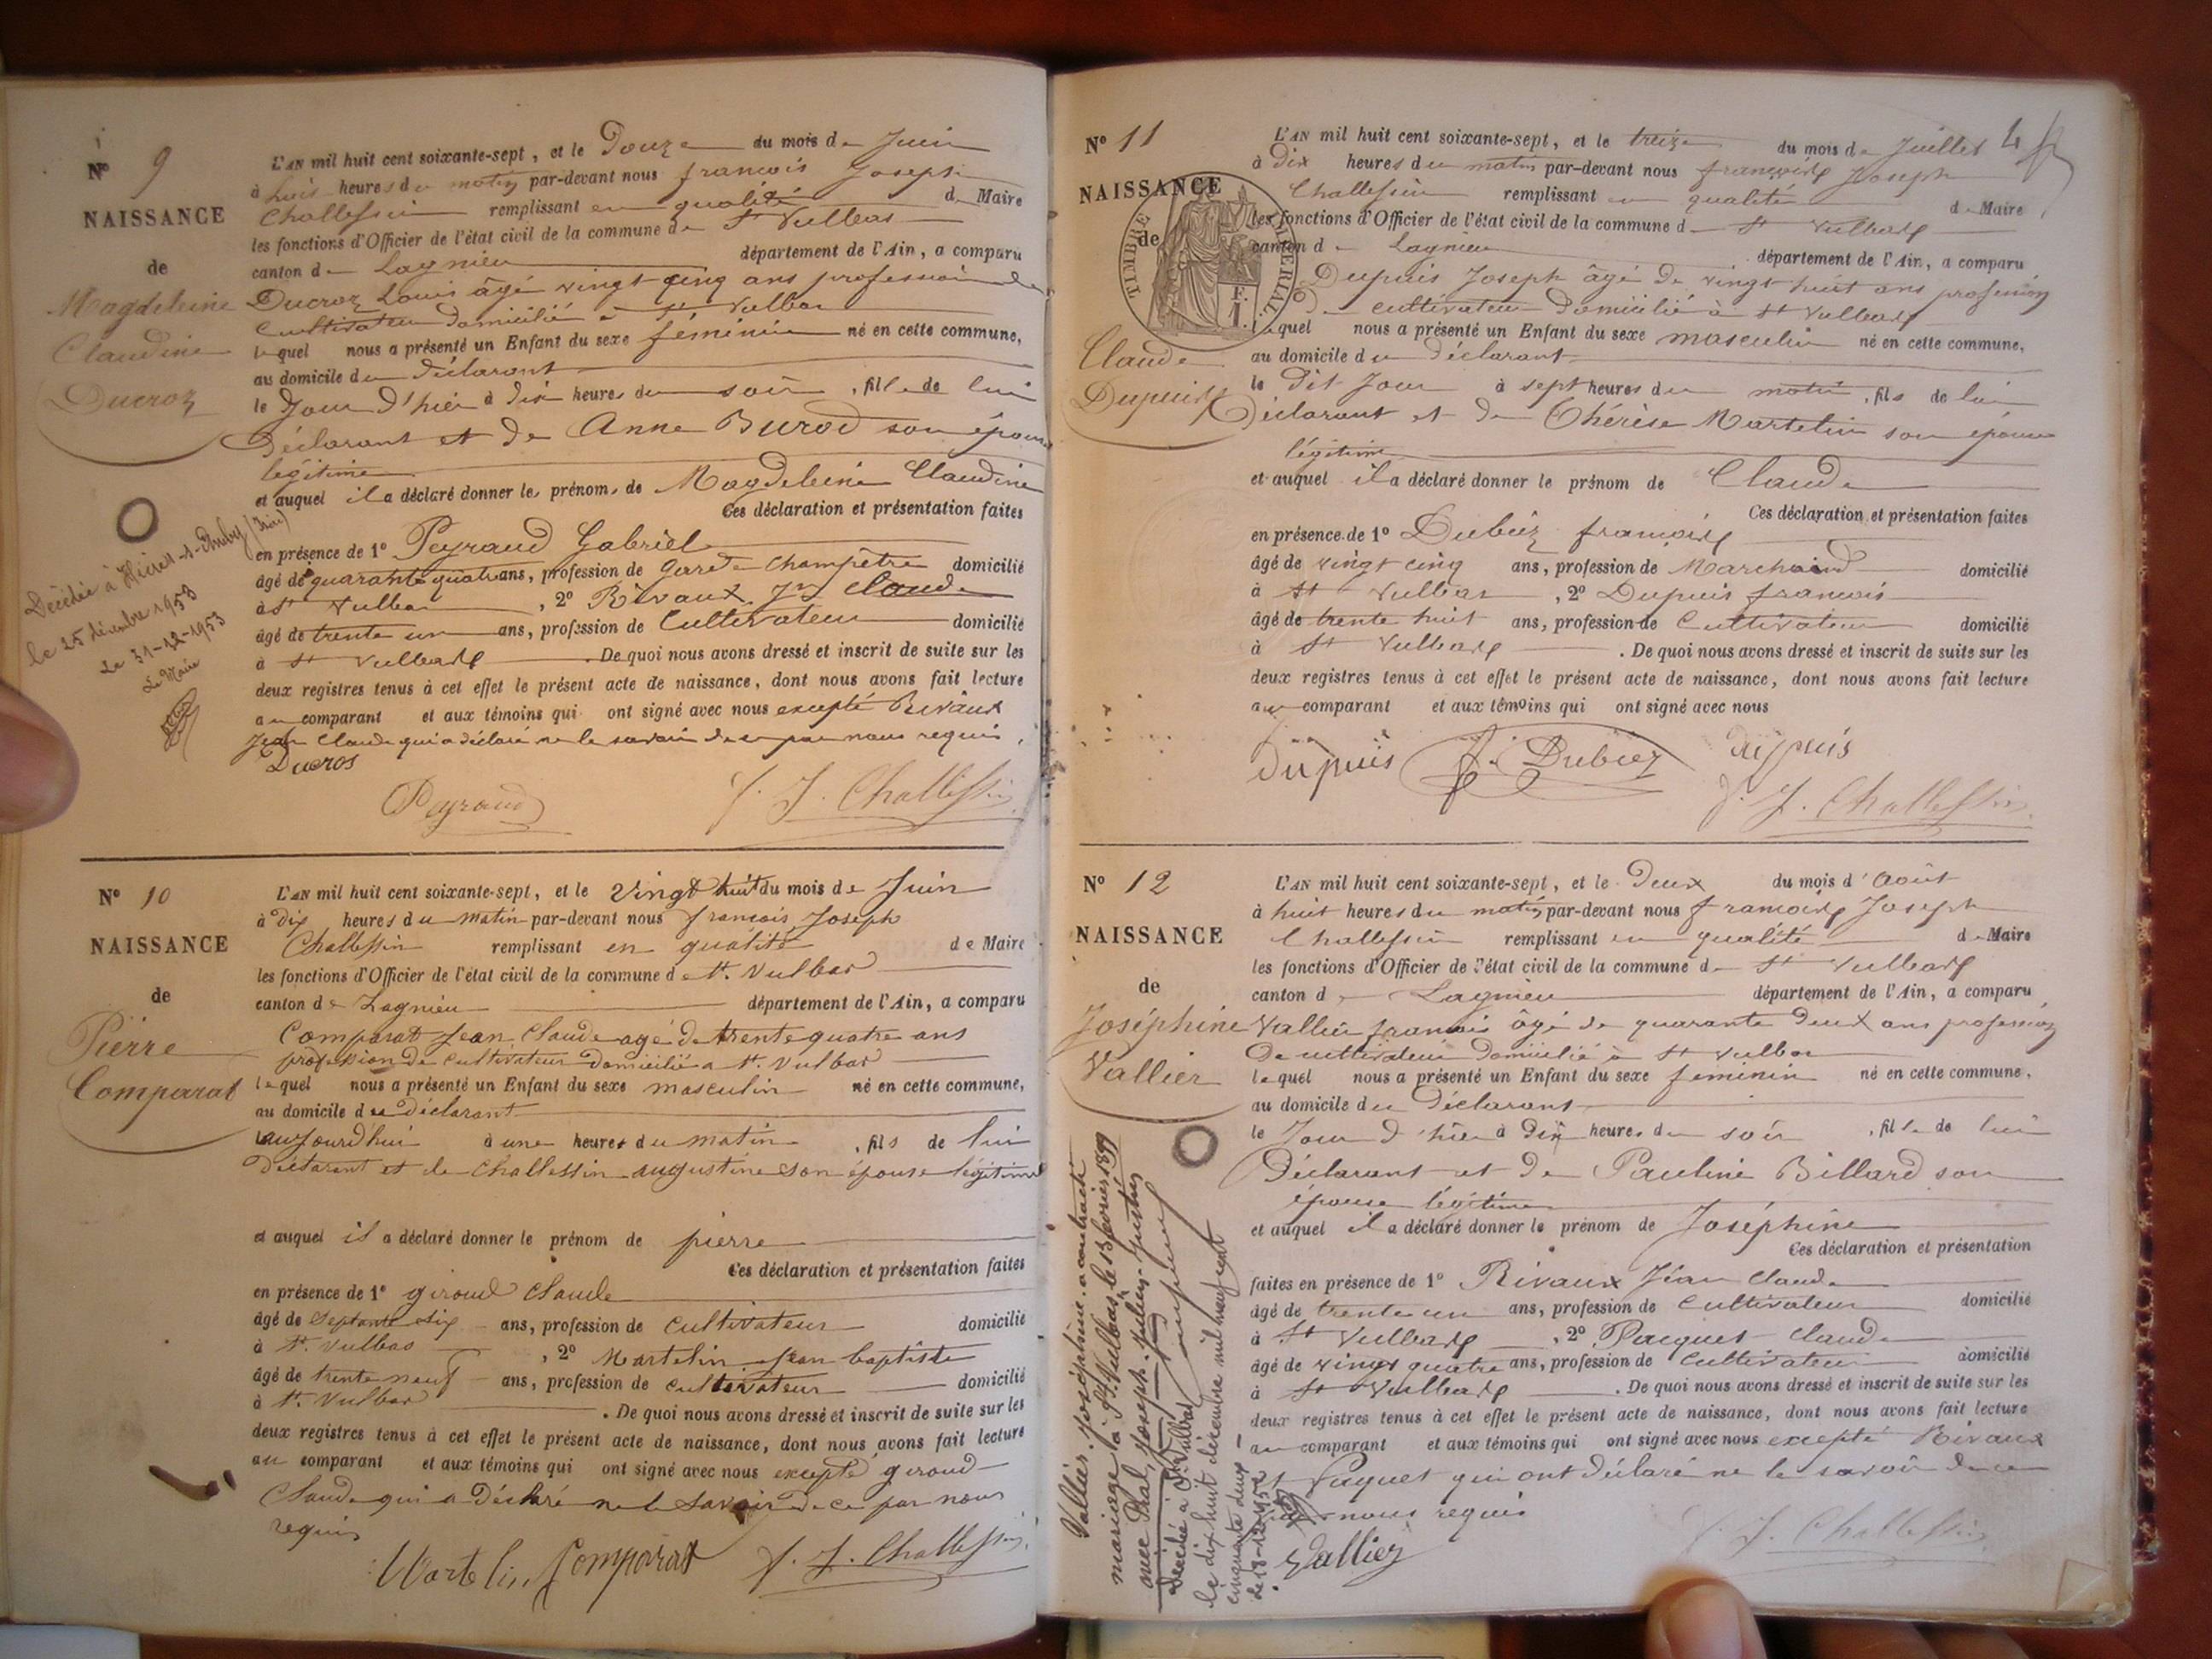 N° 9
NAISSANCE
de
Magdeleine
Claudine
Ducroz
Décédée à Hières-s-Amby (Isère)
le 25 décembre 1953
Le 31-12-1953
Le Maire
L'AN mil huit cent soixante-sept, et le Douze du mois de Juin
à huis heures du matin par-devant nous francois Joseph
Challessin remplissant en qualité de Maire
les fonctions d'Officier de l'état civil de la commune de St Vulbas
canton de Lagnieu département de l'Ain, a comparu
Ducroz Louis âgé vingt cinq ans profession de
Cultivateur domicilié à St Vulbas
lequel nous a présenté un Enfant du sexe féminin né en cette commune,
au domicile du déclarant
le Jour d'hier à dix heures du soir, fille de lui
Déclarant et de Anne Burod son épouse
légitime
et auquel il a déclaré donner les prénoms de Magdeleine Claudine
Ces déclaration et présentation faites
en présence de 1° Peyraud Gabriel
âgé de quarante quatre ans, profession de Garde Champêtre domicilié
à St Vulbas, 2° Rivaux Jn Claude
âgé de trente un ans, profession de Cultivateur domicilié
à St Vulbas. De quoi nous avons dressé et inscrit de suite sur les
deux registres tenus à cet effet le présent acte de naissance, dont nous avons fait lecture
au comparant et aux témoins qui ont signé avec nous excepté Rivaux
Jean Claude qui a déclaré ne le savoir de ce par nous requis.
Ducros
Peyraud F. J. Challessin
N° 10
NAISSANCE
de
Pierre
Comparat
L'AN mil huit cent soixante-sept, et le vingt huit du mois de Juin
à dix heures du matin par-devant nous francois Joseph
Challessin remplissant en qualité de Maire
les fonctions d'Officier de l'état civil de la commune de St. Vulbas
canton de Lagnieu département de l'Ain, a comparu
Comparat Jean Claude agé de trente quatre ans
profession de cultivateur domicilié a St. Vulbas
lequel nous a présenté un Enfant du sexe masculin né en cette commune,
au domicile du Déclarant
aujourd'hui à une heures du matin, fils de lui
Déclarant et de Challessin augustine son épouse légitime
et auquel il a déclaré donner le prénom de pierre
Ces déclaration et présentation faites
en présence de 1° giroud Claude
âgé de Septante six ans, profession de cultivateur domicilié
à St. Vulbas, 2° Martelin Jean baptiste
âgé de trente neuf ans, profession de cultivateur domicilié
à St. Vulbas. De quoi nous avons dressé et inscrit de suite sur les
deux registres tenus à cet effet le présent acte de naissance, dont nous avons fait lecture
au comparant et aux témoins qui ont signé avec nous excepté giroud
Claude qui a Déclaré ne le savoir de ce par nous
requis
Martelin Comparat F. J. Challessin
4
N° 11
NAISSANCE
de
TIMBRE IMPERIAL
F.
1
Claude
Dupuis
L'AN mil huit cent soixante-sept, et le treize du mois de Juillet
à Dix heures du matin par-devant nous françois Joseph
Challessin remplissant en qualité de Maire
les fonctions d'Officier de l'état civil de la commune d St Vulbas
canton de Lagnieu département de l'Ain, a comparu
Dupuis Joseph âgé de vingt huit ans profession
De cultivateur Domicilié à St Vulbas
lequel nous a présenté un Enfant du sexe masculin né en cette commune,
au domicile du déclarant
le Dit Jour à sept heures du matin, fils de lui
Déclarant et de Thérèse Martelin son épouse
légitime
et auquel il a déclaré donner le prénom de Claude
Ces déclaration et présentation faites
en présence de 1° Dubiez francois
âgé de vingt cinq ans, profession de Marchand domicilié
à St Vulbas, 2° Dupuis francois
âgé de trente huit ans, profession de Cultivateur domicilié
à St Vulbas. De quoi nous avons dressé et inscrit de suite sur les
deux registres tenus à cet effet le présent acte de naissance, dont nous avons fait lecture
au comparant et aux témoins qui ont signé avec nous
dupuis F. Dubiez dupuis
F. J. Challessin
N° 12
NAISSANCE
de
Joséphine
Vallier
Vallier Joséphine a contracté
mariage à St Vulbas, le 13 février 1899
avec Pral Joseph
Décédée à St Vulbas
le dix huit décembre mil neuf cent
cinquante deux
L'AN mil huit cent soixante-sept, et le Deux du mois d'Août
à huit heures du matin par-devant nous francois Joseph
Challessin remplissant en qualité de Maire
les fonctions d'Officier de l'état civil de la commune d St Vulbas
canton de Lagnieu département de l'Ain, a comparu
Vallier francois âgé de quarante deux ans profession
De cultivateur Domicilié à St Vulbas
lequel nous a présenté un Enfant du sexe féminin né en cette commune,
au domicile du Déclarant
le Jour d'hier à dix heures du soir, fille de lui
Déclarant et de Pauline Billard son
épouse légitime
et auquel il a déclaré donner le prénom de Joséphine
Ces déclaration et présentation
faites en présence de 1° Rivaux Jéan Claude
âgé de trente un ans, profession de Cultivateur domicilié
à St Vulbas, 2° Pacquet Claude
âgé de vingt quatre ans, profession de Cultivateur domicilié
à St Vulbas. De quoi nous avons dressé et inscrit de suite sur les
deux registres tenus à cet effet le présent acte de naissance, dont nous avons fait lecture
au comparant et aux témoins qui ont signé avec nous excepté Rivaux
et Paquet qui ont déclaré ne le savoir de ce
par nous requis
Vallier F. J. Challessin